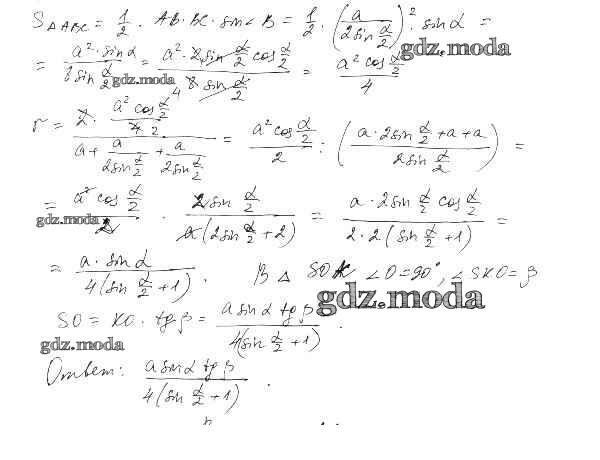 S△ABC = 1/2 · AB·BC · sin∠B = 1/2 · (a / (2sin α/2))² · sin α =
= (a² · sin α) / (8 sin α/2) = (a² · 2 sin α/2 cos α/2) / (8 sin α/2) = (a² cos α/2) / 4
gdz.moda
gdz.moda
r = (2 · (a² cos α/2) / 4) / (a + a / (2sin α/2) + a / (2sin α/2)) = (a² cos α/2) / 2 : ((a · 2sin α/2 + a + a) / (2sin α/2)) =
= (a² cos α/2) / 2 · (2 sin α/2) / (a(2sin α/2 + 2)) = (a · 2 sin α/2 cos α/2) / (2 · 2 (sin α/2 + 1)) =
gdz.moda
= (a · sin α) / (4(sin α/2 + 1)). В △ SOK ∠O = 90°, ∠SKO = β
gdz.moda
SO = KO · tg β = (a sin α tg β) / (4(sin α/2 + 1)).
gdz.moda
Ответ: (a sin α tg β) / (4(sin α/2 + 1)).